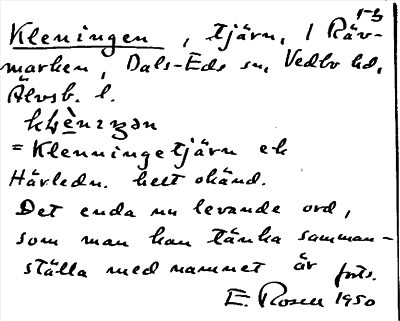 1-3
Kleningen, tjärn, i Räv-
marken, Dals-Eds sn, Vedbo hd,
Älvsb. l.
= Klenningetjärn ek
Härledn. helt okänd.
Det enda nu levande ord,
som man kan tänka samman-
ställa med namnet är forts.
E. Rosell 1950